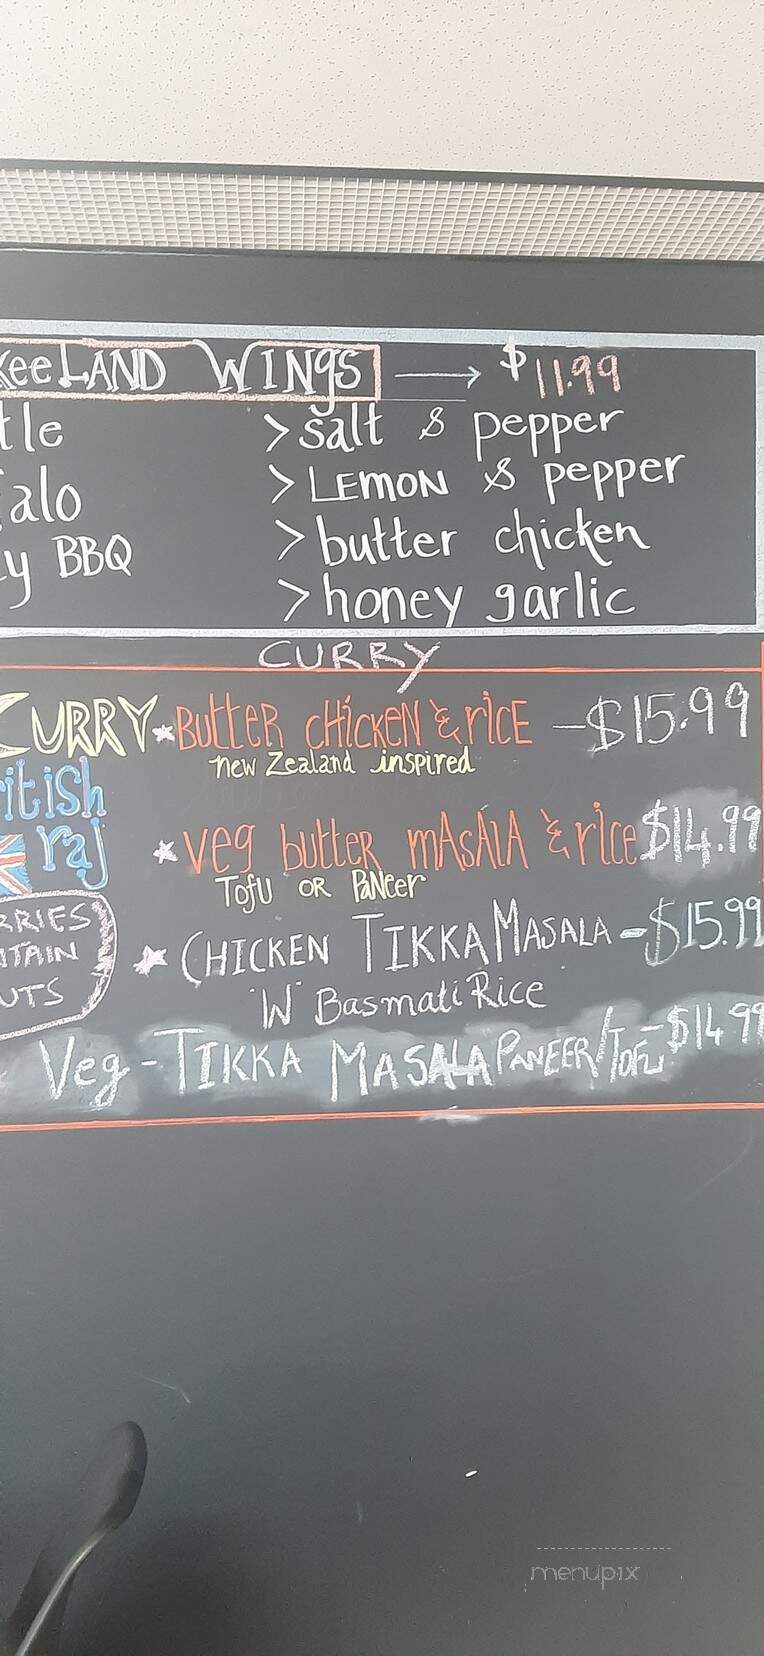 KeeLAND WINgS → $11.99
tle >salt & pepper
alo >LEMON & pepper
y BBQ >butter chicken
>honey garlic
CURRY
CURRY *BUtteR cHickeN & rIcE -$15.99
new Zealand inspired
itish
raj
*veg butteR mAsAlA & rIce $14.99
Tofu OR PaNeer
RRIES
TAIN
UTS
*CHICKEN TIKKA MASALA-$15.99
"W" Basmati Rice
Veg-TIKKA MASALA PANEER/TOFU-$14.99
menupix